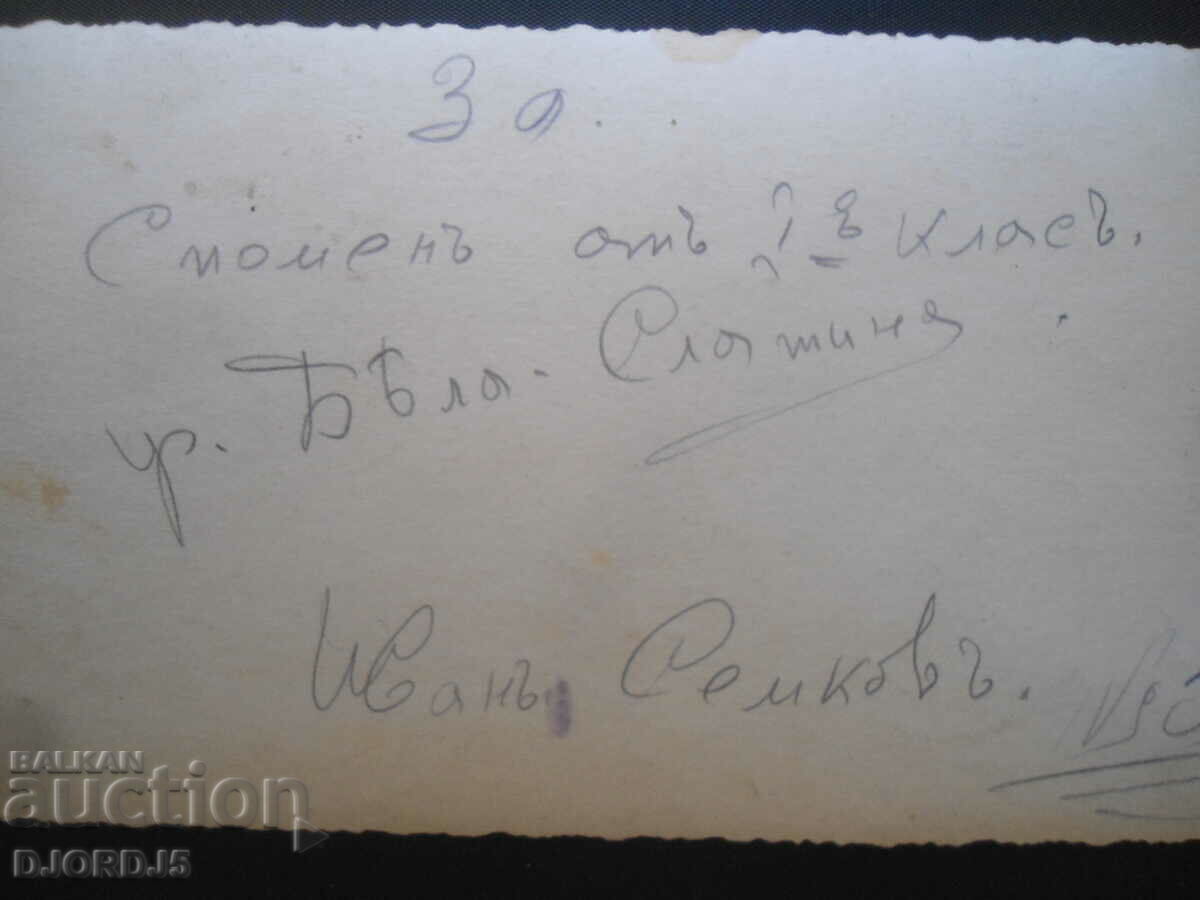 3 л.
Споменъ отъ I в класъ.
гр. Бѣла-Слатина
Иванъ Семковъ.
BALKAN
auction
DJORDJ5